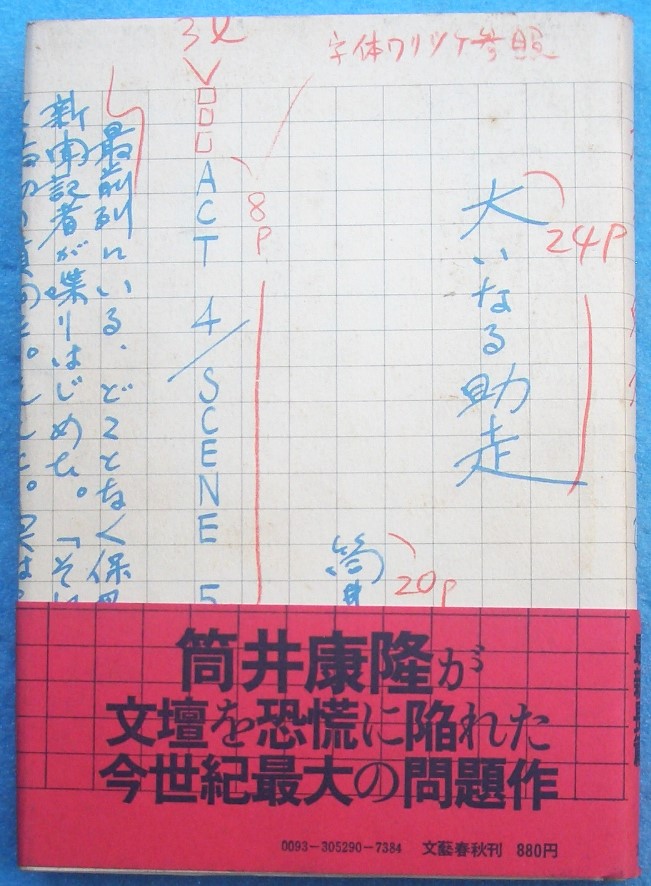 3ℓ
字体ワリツケ参照
大いなる助走
24P
筒井
20P
ACT 4/SCENE 5
8P
最前列にいる、どことなく保
新聞記者が喋りはじめた。「そ
筒井康隆が
文壇を恐慌に陥れた
今世紀最大の問題作
0093-305290-7384 文藝春秋刊 880円